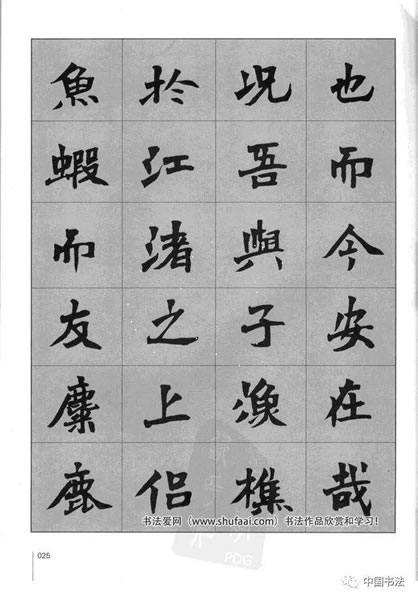 也而今安在哉
况吾與子漁樵
於江渚之上侣
魚蝦而友麋鹿
书法爱网（www.shufaai.com）书法作品欣赏和学习！
PDG
025
中国书法